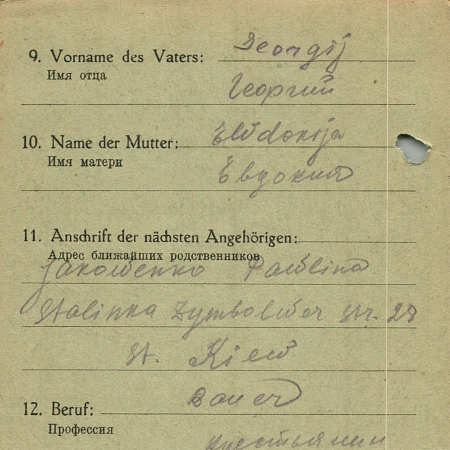 9. Vorname des Vaters: Georgij
Имя отца
Георгий
10. Name der Mutter: Ewdokija
Имя матери
Евдокия
11. Anschrift der nächsten Angehörigen:
Адрес ближайших родственников
Jakowenko Pawlina
Stalinka Zymbaliwer str. 28
st. Kiew
12. Beruf: Bauer
Профессия
крестьянин